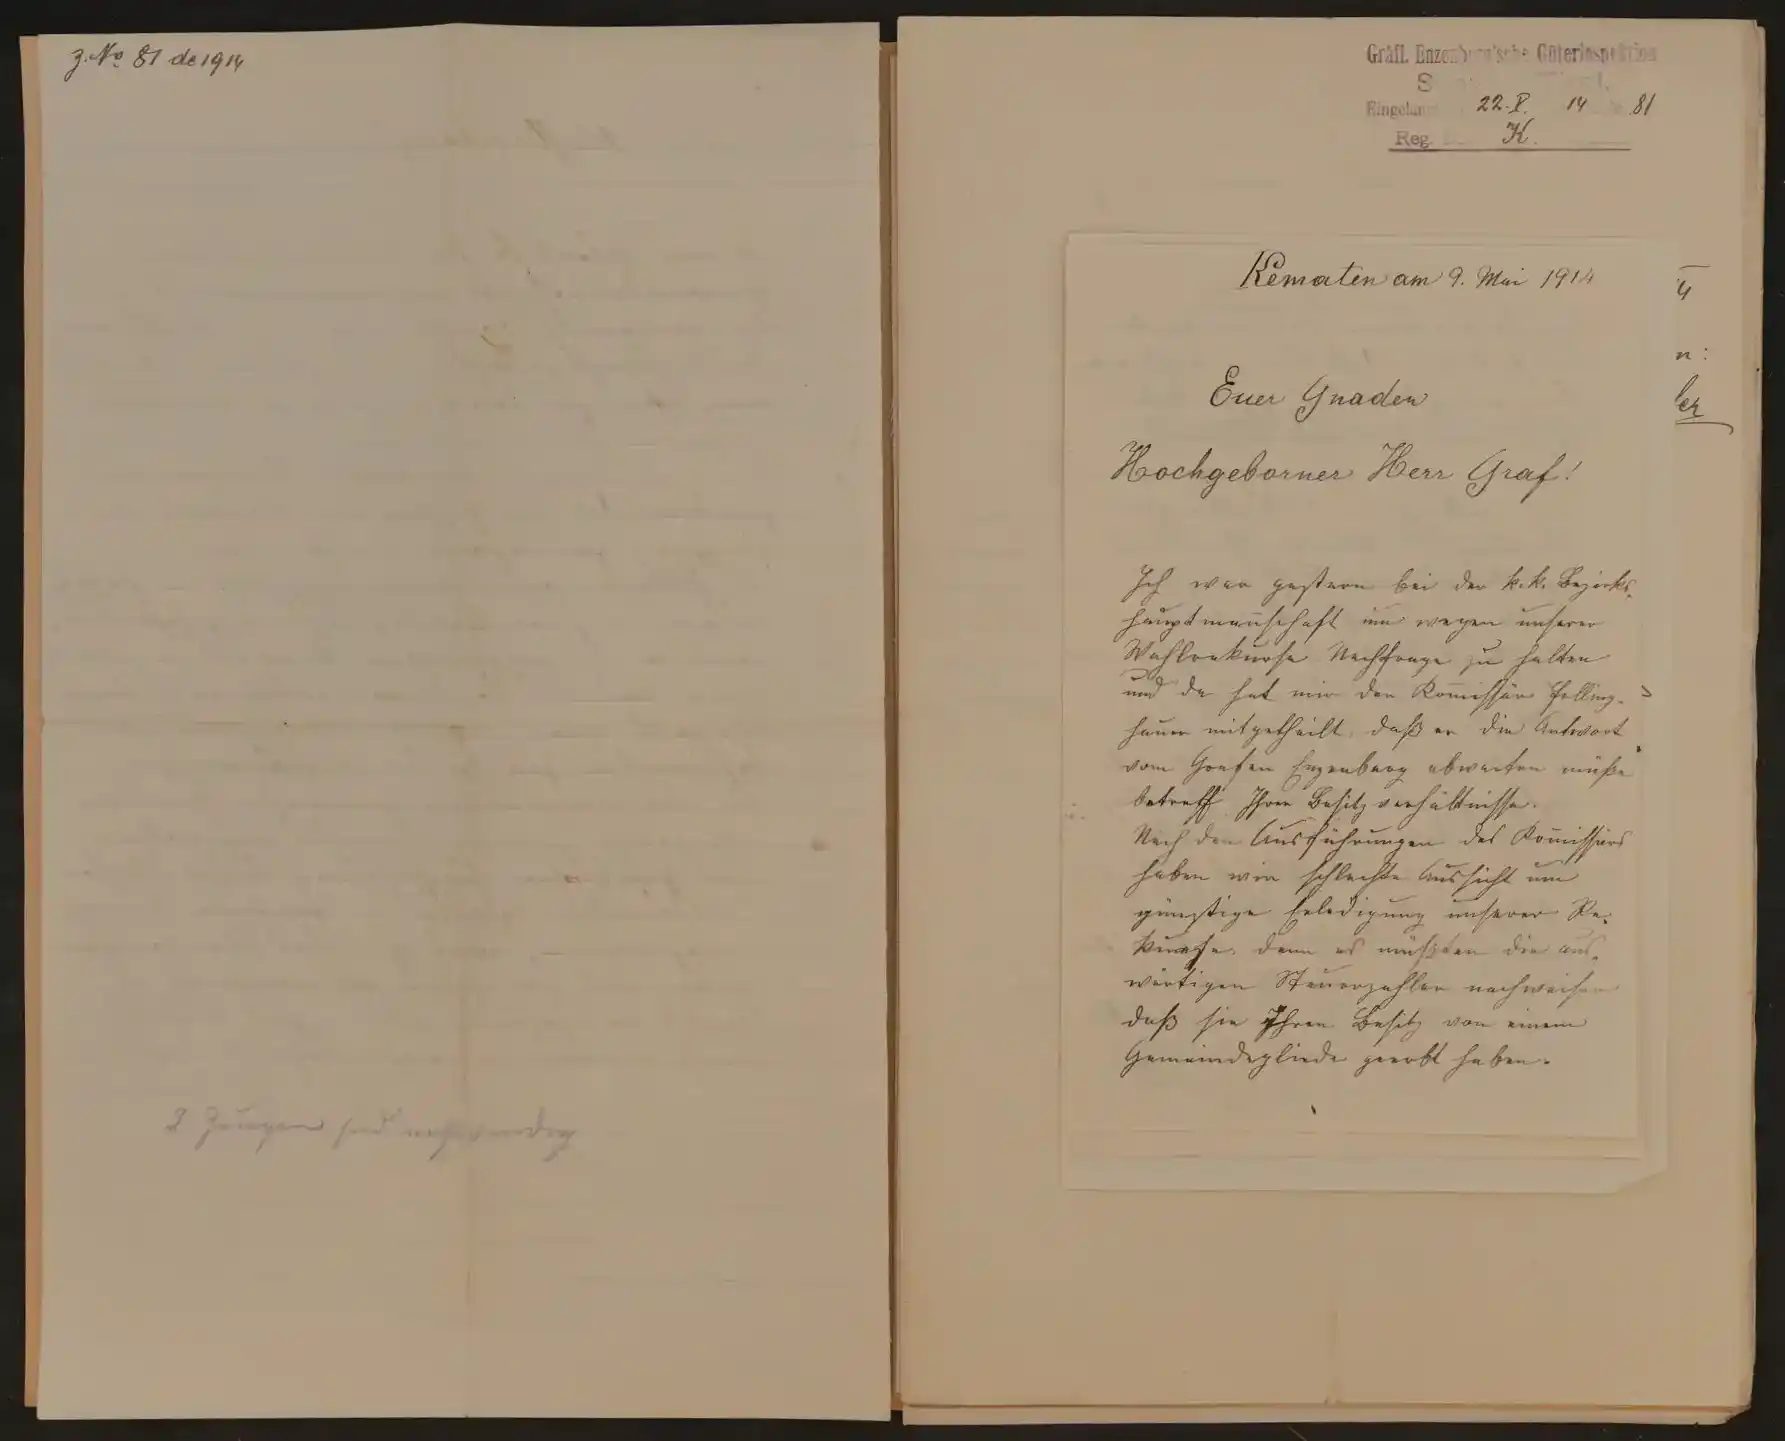 z. No 81 de 1914
2 Zeugen sind nothwendig
Gräfl. Enzenberg'sche Güterinspektion
S
Eingelan 22. V. 14 81
Reg. K.
Kematen am 9. Mai 1914
Euer Gnaden
Hochgeborner Herr Graf!
Ich war gestern bei der k. k. Bezirks-
hauptmannschaft um wegen unserer
Wahlrekurse Nachfrage zu halten
und da hat mir der Kommissär
hauer mitgetheilt, daß er die Antwort
vom Grafen Enzenberg abwarten müße
betreff Ihrer Besitzverhältnisse.
Nach den Ausführungen des Kommissärs
haben wir schlechte Aussicht um
günstige Erledigung unserer Re-
kurse, denn es müßten die aus-
wärtigen Steuerzahler nachweisen
daß sie Ihren Besitz von einem
Gemeindegliede geerbt haben.
4
n:
ler